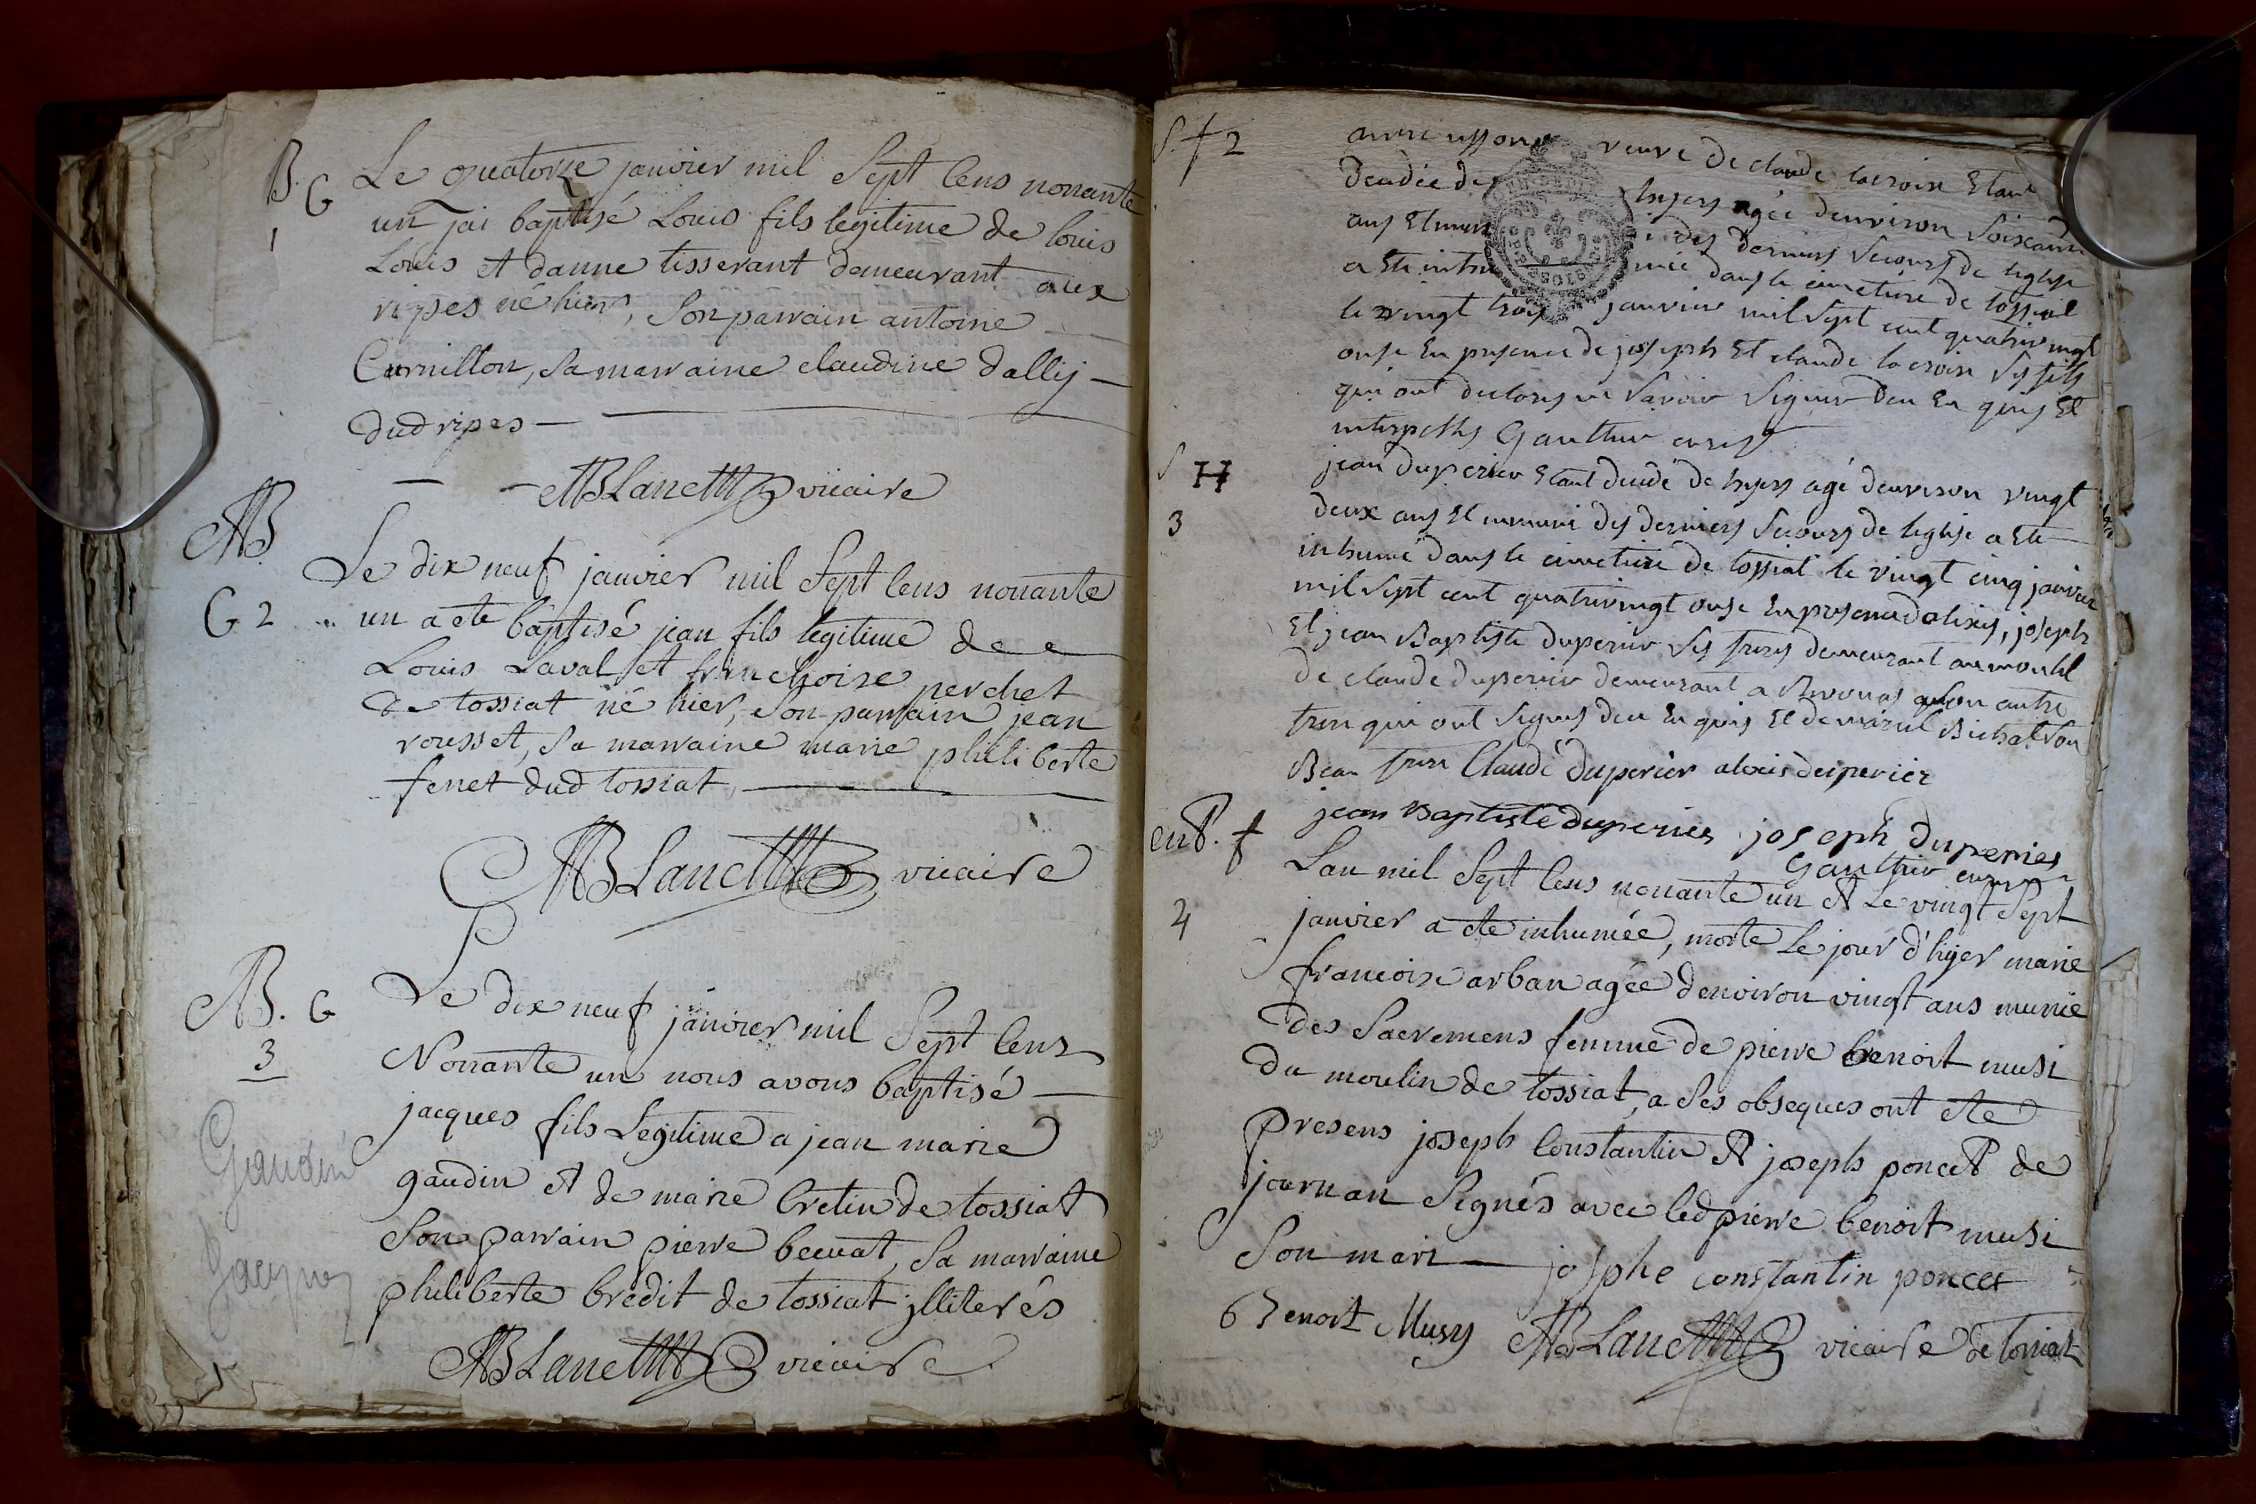 B. G
1
Le quatorze janvier mil Sept Cens nonante
un jai baptisé Louis fils legitime de louis
Louis et danne tisserant demeurant aux
ripes né hier, Son parrain antoine
Curnillon, Sa marraine claudine dallij
dud ripes
vicaire
B
G 2
Le dix neuf janvier mil Sept Cens nonante
un a ete baptisé jean fils legitime de
Louis Laval et franchoise perchet
de tossiat né hier, Son parrain jean
rousset, Sa marraine marie philiberte
fenet dud tossiat
vicaire
B. G
3
Gaudin
Jacques
Le dix neuf janvier mil Sept Cens
Nonante un nous avons baptisé
jacques fils Legitime a jean marie
gaudin et de marie Cretin de tossiat
Son parrain pierre becuat, Sa marraine
philiberte bredit de tossiat jlliterés
vicaire
S. f 2
anne veuve de claude lacroix Etant
decedée hyers agée denviron Soixante
ans Et des derniers Secours de leglise
a Ete dans le cimetiere de tossiat
le vingt trois janvier mil Sept cent quatrevingt
onse En presence de joseph Et claude lacroix Ses fils
qui ont declares ne Savoir Signer deu En quis Et
interpellés Gauthier cure
S H
3
jean duperier Etant decedé de hyers agé denviron vingt
deux ans Et unmuni des derniers Secours de leglise a Ete
inhumé dans le cimetiere de tossiat le vingt cinq janvier
mil Sept cent quatrevingt onse En presence dalexis, joseph
Et jean Baptiste duperier Ses freres demeurant au
de claude duperier demeurant a Revonas Son autre
frere qui ont Signes deu En quis Et de Bichat Son
Beau frere Claude duperier alexis duperier
jean Baptiste duperier joseph duperier
Gauthier cure
ent. f
4
Lan mil Sept Cens nonante un et Le vingt Sept
janvier a ete inhumée, morte Le jour d'hyer marie
francoise arban agée denviron vingt ans munie
des Sacremens femme de pierre benoit musi
du moulin de tossiat, a Ses obseques ont ete
presens joseph Constantin et joseph poncet de
journan Signés avec led pierre benoit musi
Son mari josphe constantin poncet
Benoit Musy vicaire de tossiat